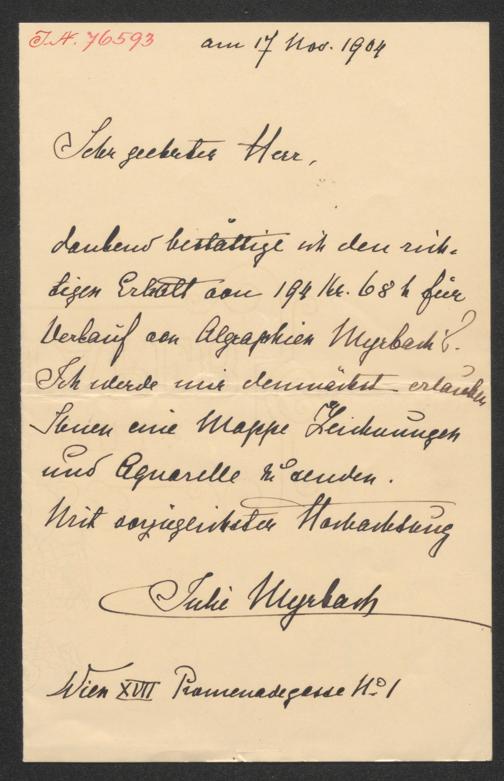 I.N. 76593
am 17 Nov. 1904
Sehr geehrter Herr,
dankend bestättige ich den rich-
tigen Erhalt von 194 Kr. 68 h für
Verkauf von Algraphien Myrbach's.
Ich werde mir demnächst erlauben
Ihnen eine Mappe Zeichnungen
und Aquarelle zu senden.
Mit vorzüglichster Hochachtung
Julie Myrbach
Wien XVII Promenadegasse No 1